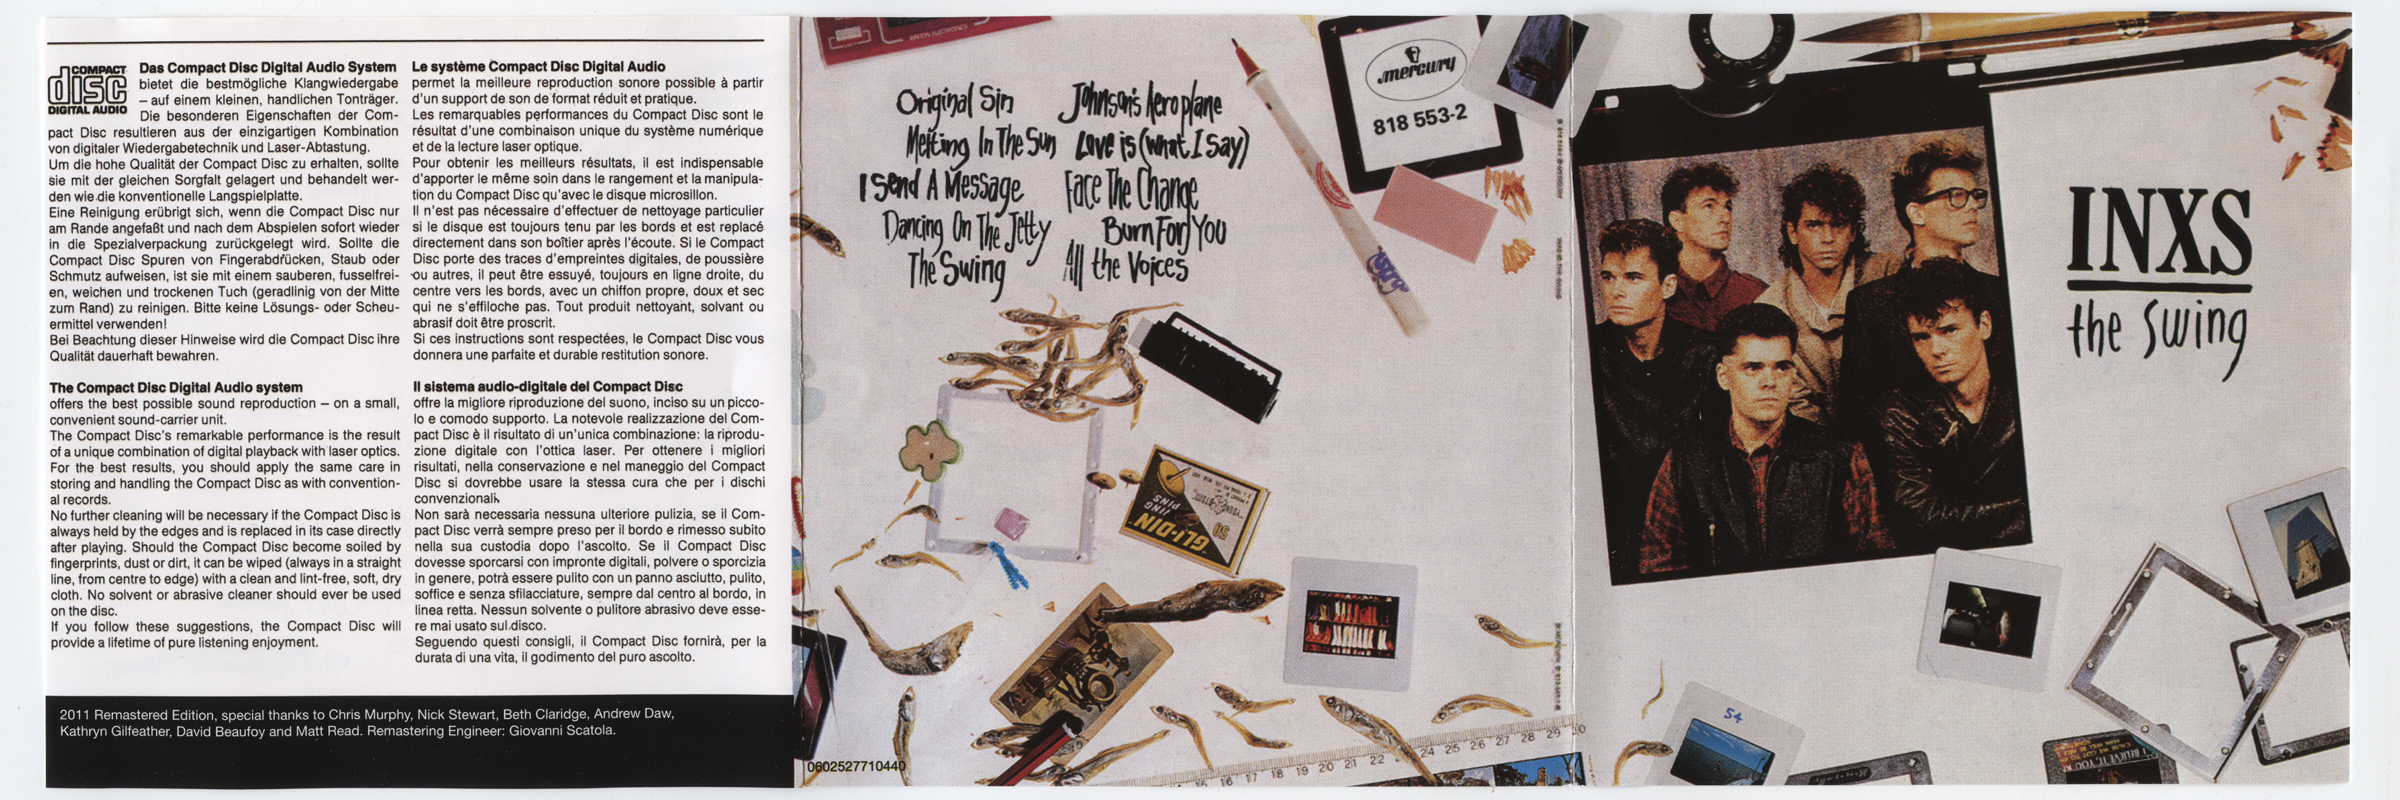 COMPACT
disc
DIGITAL AUDIO
Das Compact Disc Digital Audio System
bietet die bestmögliche Klangwiedergabe
– auf einem kleinen, handlichen Tonträger.
Die besonderen Eigenschaften der Com-
pact Disc resultieren aus der einzigartigen Kombination
von digitaler Wiedergabetechnik und Laser-Abtastung.
Um die hohe Qualität der Compact Disc zu erhalten, sollte
sie mit der gleichen Sorgfalt gelagert und behandelt wer-
den wie die konventionelle Langspielplatte.
Eine Reinigung erübrigt sich, wenn die Compact Disc nur
am Rande angefaßt und nach dem Abspielen sofort wieder
in die Spezialverpackung zurückgelegt wird. Sollte die
Compact Disc Spuren von Fingerabdrücken, Staub oder
Schmutz aufweisen, ist sie mit einem sauberen, fusselfrei-
en, weichen und trockenen Tuch (geradlinig von der Mitte
zum Rand) zu reinigen. Bitte keine Lösungs- oder Scheu-
ermittel verwenden!
Bei Beachtung dieser Hinweise wird die Compact Disc ihre
Qualität dauerhaft bewahren.
The Compact Disc Digital Audio system
offers the best possible sound reproduction – on a small,
convenient sound-carrier unit.
The Compact Disc's remarkable performance is the result
of a unique combination of digital playback with laser optics.
For the best results, you should apply the same care in
storing and handling the Compact Disc as with convention-
al records.
No further cleaning will be necessary if the Compact Disc is
always held by the edges and is replaced in its case directly
after playing. Should the Compact Disc become soiled by
fingerprints, dust or dirt, it can be wiped (always in a straight
line, from centre to edge) with a clean and lint-free, soft, dry
cloth. No solvent or abrasive cleaner should ever be used
on the disc.
If you follow these suggestions, the Compact Disc will
provide a lifetime of pure listening enjoyment.
Le système Compact Disc Digital Audio
permet la meilleure reproduction sonore possible à partir
d'un support de son de format réduit et pratique.
Les remarquables performances du Compact Disc sont le
résultat d'une combinaison unique du système numérique
et de la lecture laser optique.
Pour obtenir les meilleurs résultats, il est indispensable
d'apporter le même soin dans le rangement et la manipula-
tion du Compact Disc qu'avec le disque microsillon.
Il n'est pas nécessaire d'effectuer de nettoyage particulier
si le disque est toujours tenu par les bords et est replacé
directement dans son boîtier après l'écoute. Si le Compact
Disc porte des traces d'empreintes digitales, de poussière
ou autres, il peut être essuyé, toujours en ligne droite, du
centre vers les bords, avec un chiffon propre, doux et sec
qui ne s'effiloche pas. Tout produit nettoyant, solvant ou
abrasif doit être proscrit.
Si ces instructions sont respectées, le Compact Disc vous
donnera une parfaite et durable restitution sonore.
Il sistema audio-digitale del Compact Disc
offre la migliore riproduzione del suono, inciso su un picco-
lo e comodo supporto. La notevole realizzazione del Com-
pact Disc è il risultato di un'unica combinazione: la riprodu-
zione digitale con l'ottica laser. Per ottenere i migliori
risultati, nella conservazione e nel maneggio del Compact
Disc si dovrebbe usare la stessa cura che per i dischi
convenzionali.
Non sarà necessaria nessuna ulteriore pulizia, se il Com-
pact Disc verrà sempre preso per il bordo e rimesso subito
nella sua custodia dopo l'ascolto. Se il Compact Disc
dovesse sporcarsi con impronte digitali, polvere o sporcizia
in genere, potrà essere pulito con un panno asciutto, pulito,
soffice e senza sfilacciature, sempre dal centro al bordo, in
linea retta. Nessun solvente o pulitore abrasivo deve esse-
re mai usato sul disco.
Seguendo questi consigli, il Compact Disc fornirà, per la
durata di una vita, il godimento del puro ascolto.
2011 Remastered Edition, special thanks to Chris Murphy, Nick Stewart, Beth Claridge, Andrew Daw,
Kathryn Gilfeather, David Beaufoy and Matt Read. Remastering Engineer: Giovanni Scatola.
Original Sin
Melting In The Sun
I Send A Message
Dancing On The Jetty
The Swing
Johnson's Aeroplane
Love is (what I say)
Face The Change
Burn For You
All the Voices
mercury
818 553-2
GLI-DIN
JING
PINS
50
0602527710440
16 17 18 19 20 21 22 24 25 26 27 28 29 30
INXS
the swing
54
I BELIEVE IT, YOU